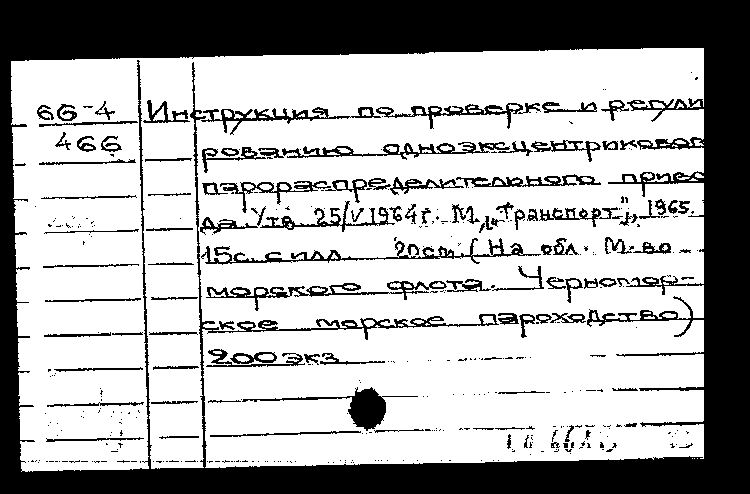 66-4 Инструкция по проверке и регули
466 рованию одноэксцентриковог
парораспределительного приво
да. Утв 25/V 1964г. М., "Транспорт", 1965.
15с. с илл. 20см. (На обл. М-во
морского флота. Черномор-
ское морское пароходство)
200 экз